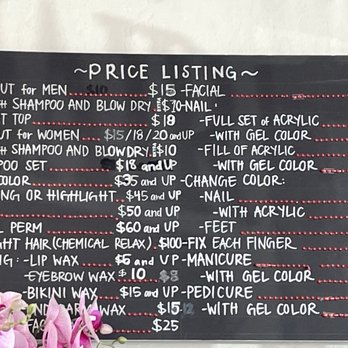 ~PRICE LISTING~
UT for MEN $10 $15
H SHAMPOO AND BLOW DRY $20
T TOP $18
UT for WOMEN $15/18/20 and UP
H SHAMPOO AND BLOW DRY $10
POO SET $18 and UP
COLOR $35 and UP
NG OR HIGHLIGHT $45 and UP
$50 and UP
PERM $60 and UP
GHT HAIR (CHEMICAL RELAX) $100
G: -LIP WAX $6 and UP
-EYEBROW WAX $10 $8
-BIKINI WAX $15 and UP
ARM WAX $15
FAC $25
-FACIAL
-NAIL:
-FULL SET of ACRYLIC
-WITH GEL COLOR
-FILL of ACRYLIC
-WITH GEL COLOR
-CHANGE COLOR:
-NAIL
-WITH ACRYLIC
-FEET
-FIX EACH FINGER
-MANICURE
-WITH GEL COLOR
-PEDICURE
-WITH GEL COLOR